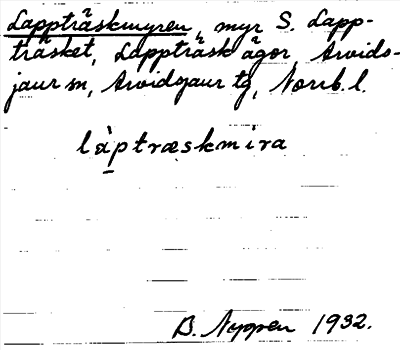 Lappträskmyren, myr S. Lapp-
träsket, Lappträsk ägor, Arvids-
jaur sn, Arvidsjaur tg, Norrb. l.
làptræskmira
B. Nygren 1932.